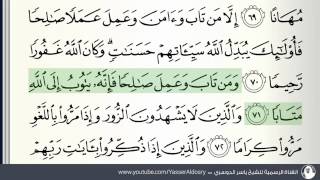 مُهَانًا ٦٩ إِلَّا مَن تَابَ وَءَامَنَ وَعَمِلَ عَمَلًا صَٰلِحًا
فَأُو۟لَٰٓئِكَ يُبَدِّلُ ٱللَّهُ سَيِّـَٔاتِهِمْ حَسَنَٰتٍ ۗ وَكَانَ ٱللَّهُ غَفُورًا
رَّحِيمًا ٧٠ وَمَن تَابَ وَعَمِلَ صَٰلِحًا فَإِنَّهُۥ يَتُوبُ إِلَى ٱللَّهِ
مَتَابًا ٧١ وَٱلَّذِينَ لَا يَشْهَدُونَ ٱلزُّورَ وَإِذَا مَرُّوا۟ بِٱللَّغْوِ
مَرُّوا۟ كِرَامًا ٧٢ وَٱلَّذِينَ إِذَا ذُكِّرُوا۟ بِـَٔايَٰتِ رَبِّهِمْ
القناة الرسمية للشيخ ياسر الدوسري - www.youtube.com/YasserAldosry